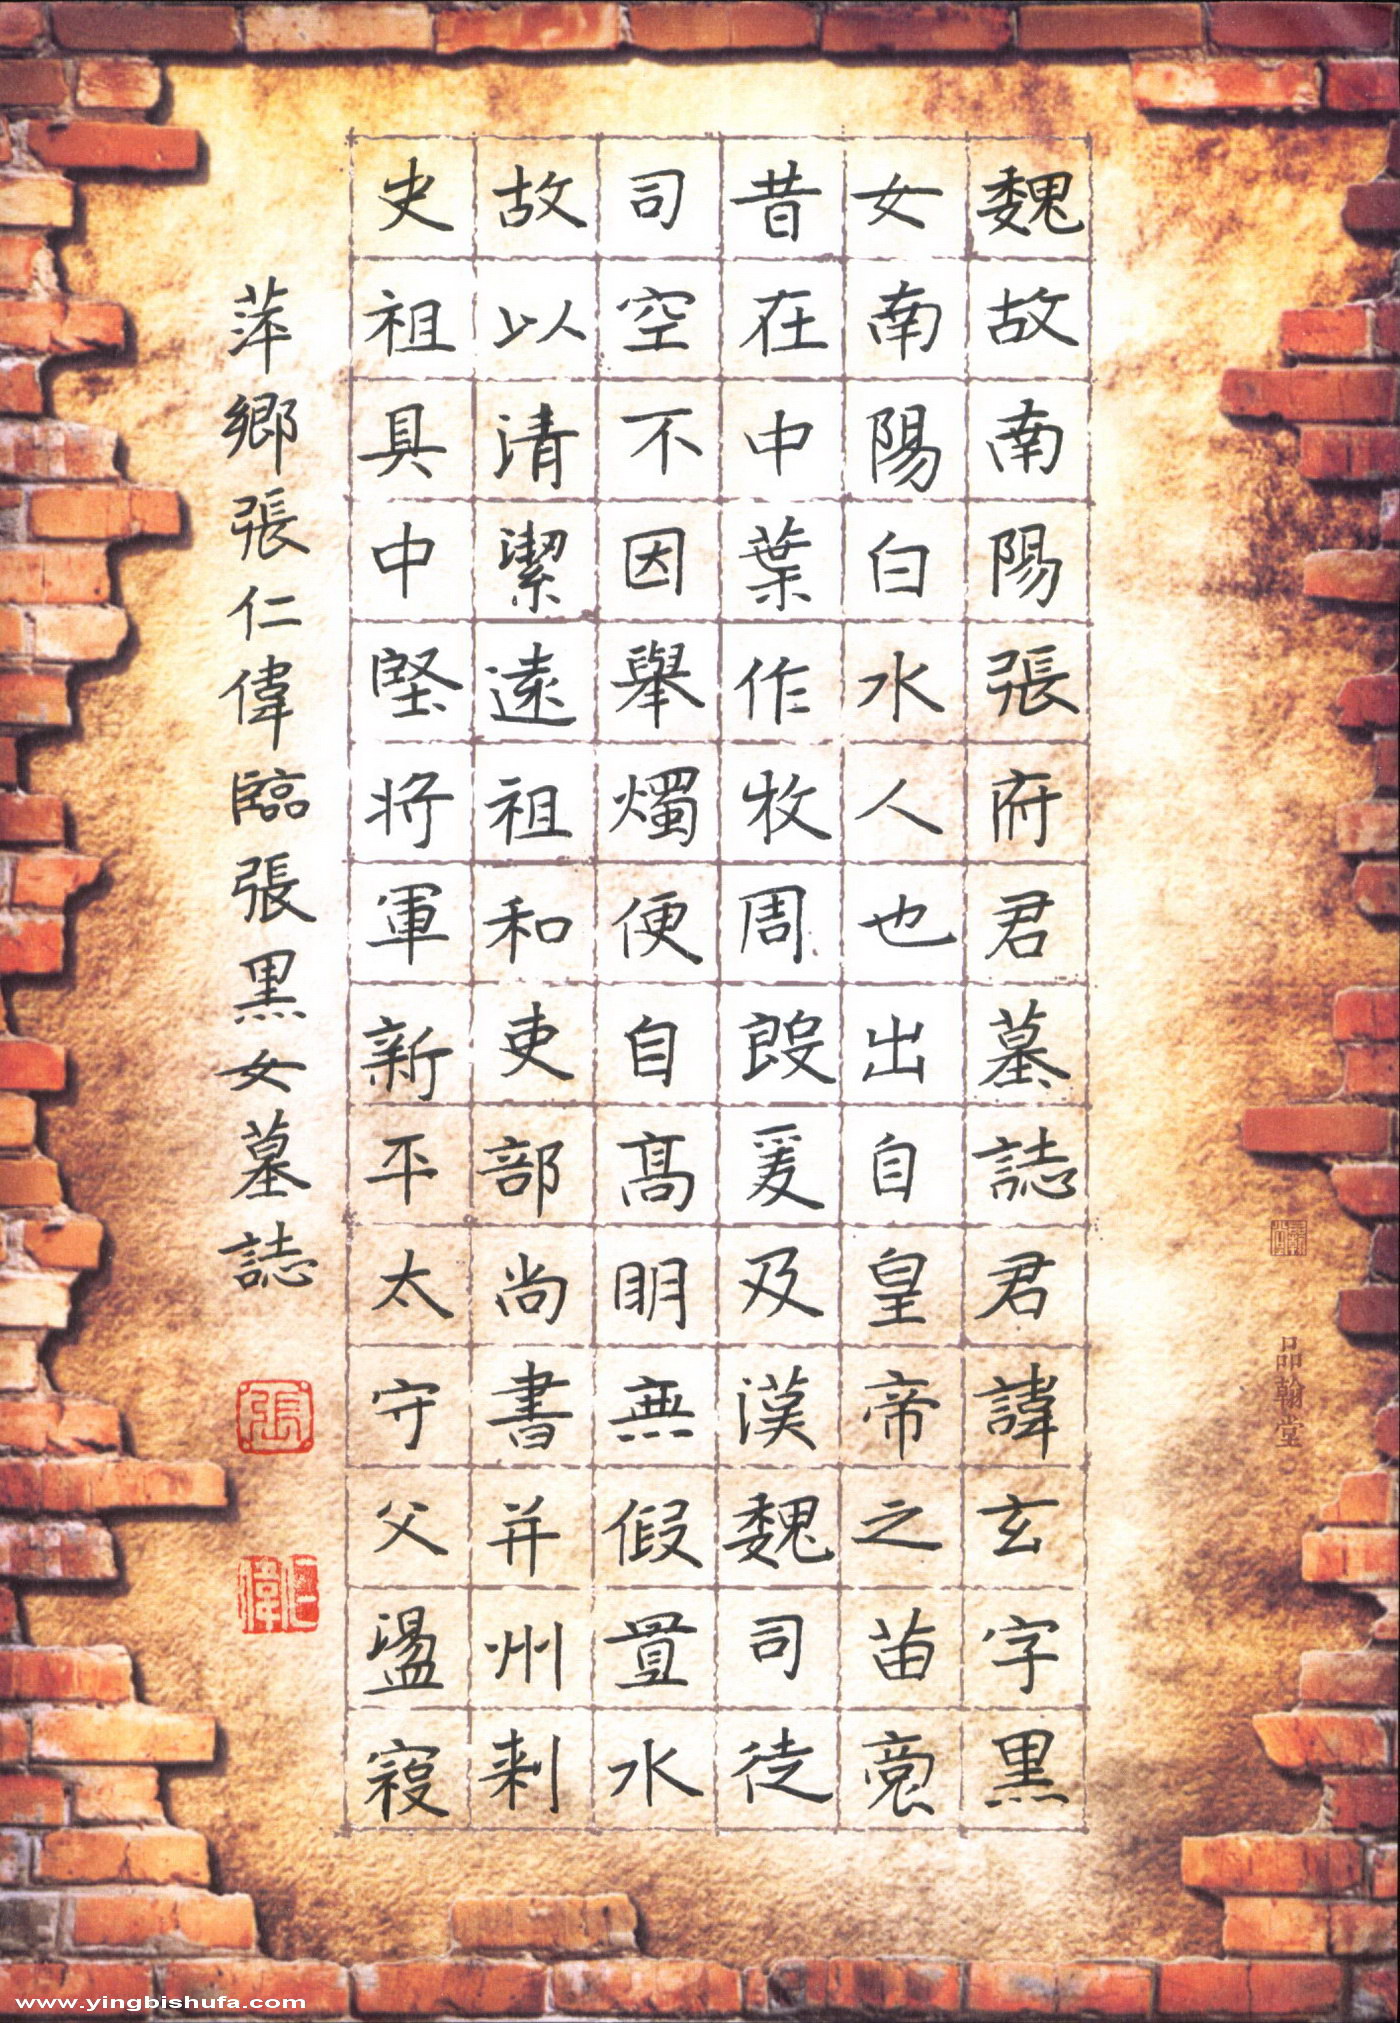 魏故南陽張府君墓誌君諱玄字黑
女南陽白水人也出自皇帝之苗裔
昔在中葉作牧周殷爰及漢魏司徒
司空不因舉燭便自髙眀無假置水
故以清潔遠祖和吏部尚書并州刺
史祖具中堅將軍新平太守父盪寇
萍鄉張仁偉臨張黑女墓誌
張
仁偉
品翰堂
www.yingbishufa.com